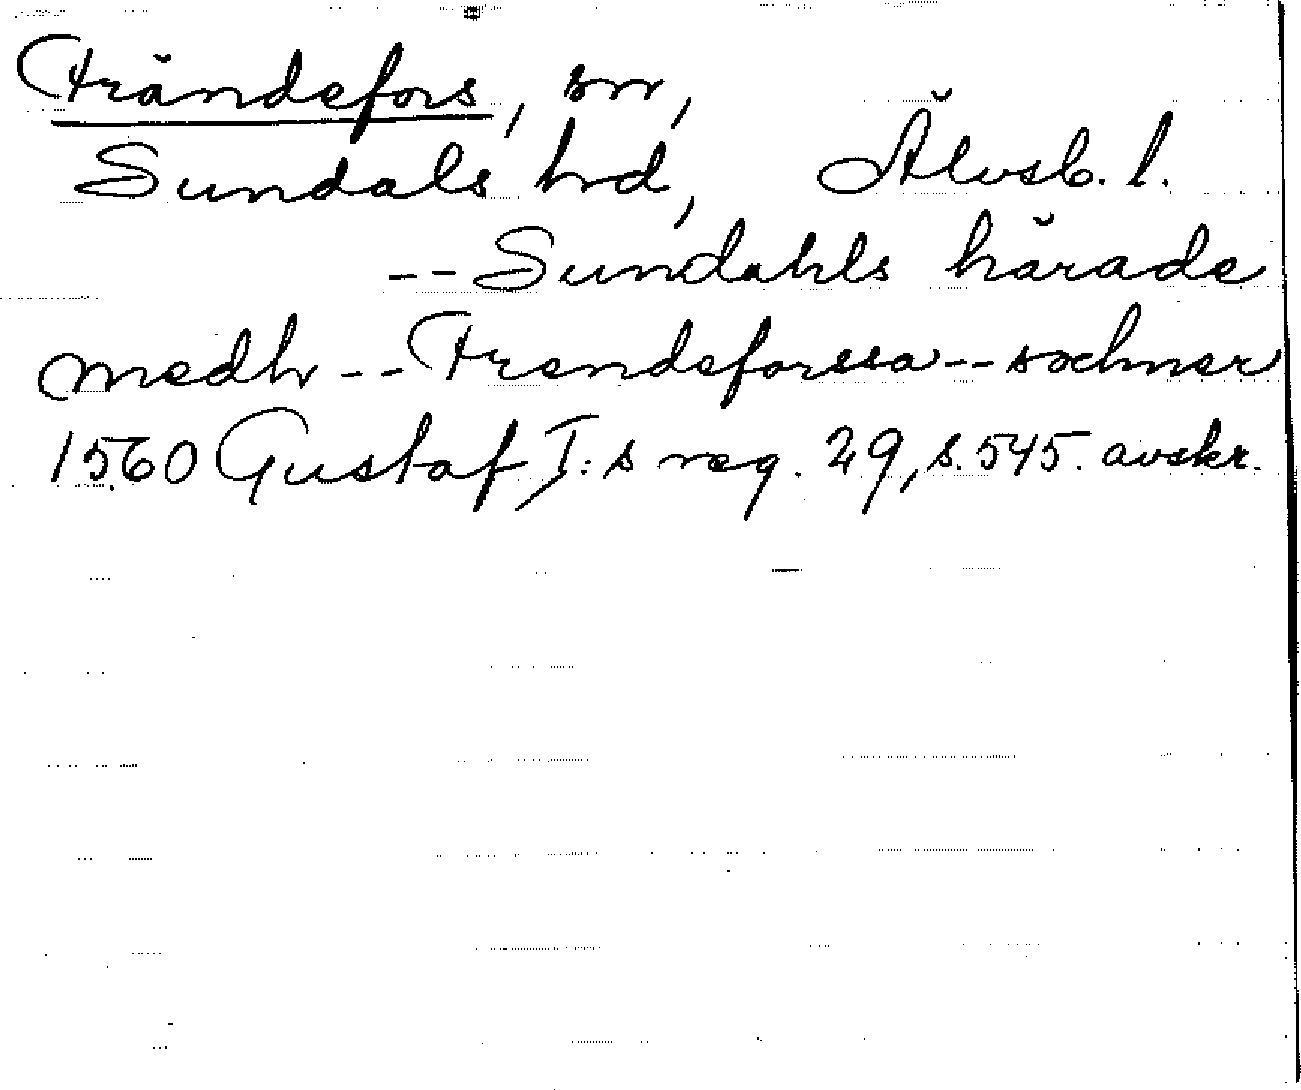 Frändefors, sn,
Sundals hrd, Älvsb. l.
-- Sundahls härade
medh -- Frendeforssa -- sochner
1560 Gustaf I:s reg. 29, s. 545. avskr.